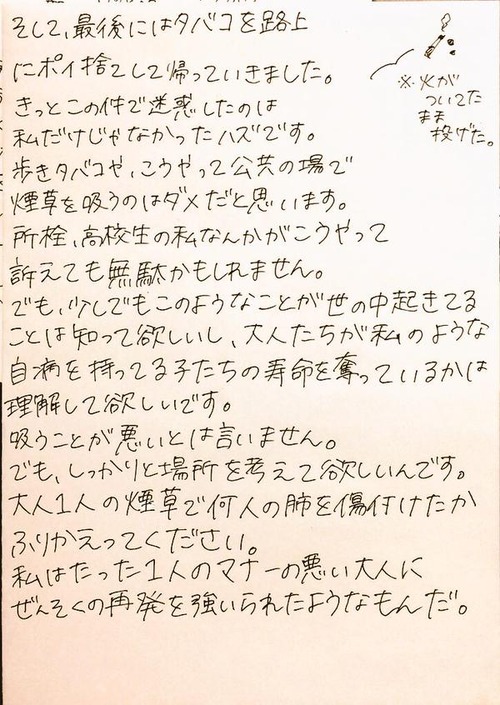 そして、最後にはタバコを路上
にポイ捨てして帰っていきました。
※火が
ついてた
まま
投げた。
きっとこの件で迷惑したのは
私だけじゃなかったハズです。
歩きタバコや、こうやって公共の場で
煙草を吸うのはダメだと思います。
所栓、高校生の私なんかがこうやって
訴えても無駄かもしれません。
でも、少しでもこのようなことが世の中起きてる
ことは知って欲しいし、大人たちが私のような
自病を持ってる子たちの寿命を奪っているかは
理解して欲しいです。
吸うことが悪いとは言いません。
でも、しっかりと場所を考えて欲しいんです。
大人1人の煙草で何人の肺を傷付けたか
ふりかえってください。
私はたった1人のマナーの悪い大人に
ぜんそくの再発を強いられたようなもんだ。